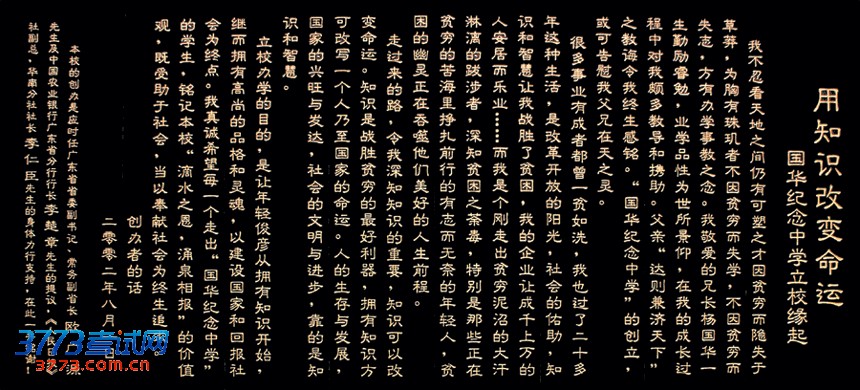 用知识改变命运
国华纪念中学立校缘起
我不忍看天地之间仍有可塑之才因贫穷而隐失于
草莽，为胸有珠玑者不因贫穷而失学，不因贫穷而
失志，方有办学事教之念。我敬爱的兄长杨国华一
生勤励睿勉，业学品性为世所景仰，在我的成长过
程中对我颇多教导和携助。父亲“达则兼济天下”
之教诲令我终生感铭。“国华纪念中学”的创立，
或可告慰我父兄在天之灵。
很多事业有成者都曾一贫如洗，我也过了二十多
年这种生活，是改革开放的阳光，社会的佑助，知
识和智慧让我战胜了贫困，我的企业让成千上万的
人安居而乐业……而我是个刚走出贫穷泥沼的大汗
淋漓的跋涉者，深知贫困之荼毒，特别是那些正在
贫穷的苦海里挣扎前行的有志而无奈的年轻人，贫
困的幽灵正在吞噬他们美好的人生前程。
走过来的路，令我深知知识的重要，知识可以改
变命运。知识是战胜贫穷的最好利器，拥有知识方
可改写一个人乃至国家的命运。人的生存与发展，
国家的兴旺与发达，社会的文明与进步，靠的是知
识和智慧。
立校办学的目的，是让年轻俊彦从拥有知识开始，
继而拥有高尚的品格和灵魂，以建设国家和回报社
会为终点。我真诚希望每一个走出“国华纪念中学”
的学生，铭记本校“滴水之恩，涌泉相报”的价值
观，既受助于社会，当以奉献社会为终生追
创办者的话
二零零二年八月
本校的创办是应时任广东省省委副书记、常务副省长欧
先生及中国农业银行广东省分行行长李楚章先生的提议，《
社副总，华南分社社长李仁臣先生的身体力行支持，在此
3773考试网
3773.com